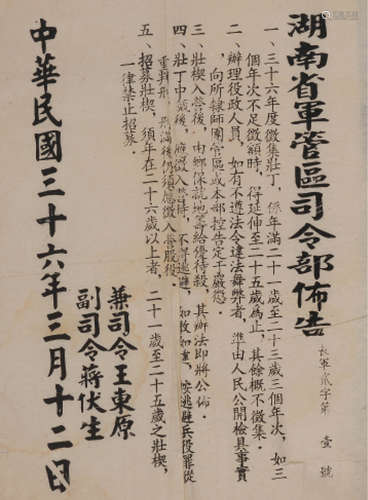 湖南省軍管區司令部佈告
軍貳字第 壹 號
一、三十六年度徵集壯丁，係年滿二十一歲至二十三歲三個年次，如三
個年次不足徵額時，得延伸至二十五歲為止，其餘概不徵集。
二、辦理役政人員，如有不遵法令違法舞弊者，準由人民公開檢具事實
，向所隸師團管區或本部控告定予嚴懲。
三、壯丁入營後，由鄉保就地籌給優待穀，其辦法即將公佈。
四、壯丁中籤後，應徵入營，不得逃避，如敢故違，按逃避兵役罪從
重判刑，刑滿後仍須應徵入營服役。
五、招募壯丁，須年在二十六歲以上者，二十一歲至二十五歲之壯丁，
一律禁止招募。
兼司令王東原
副司令蔣伏生
中華民國三十六年三月十二日